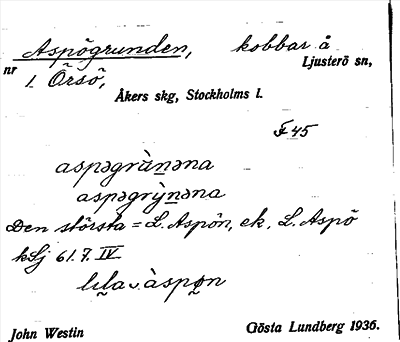 Aspögrunden, kobbar å
nr 1. Örsö, Ljusterö sn,
Åkers skg, Stockholms l.
F 45
aspəgrùnəna
aspəgrỳnəna
Den största = L. Aspön, ek. L. Aspö
kLj 61.7. IV
àspo̤n
John Westin Gösta Lundberg 1936.